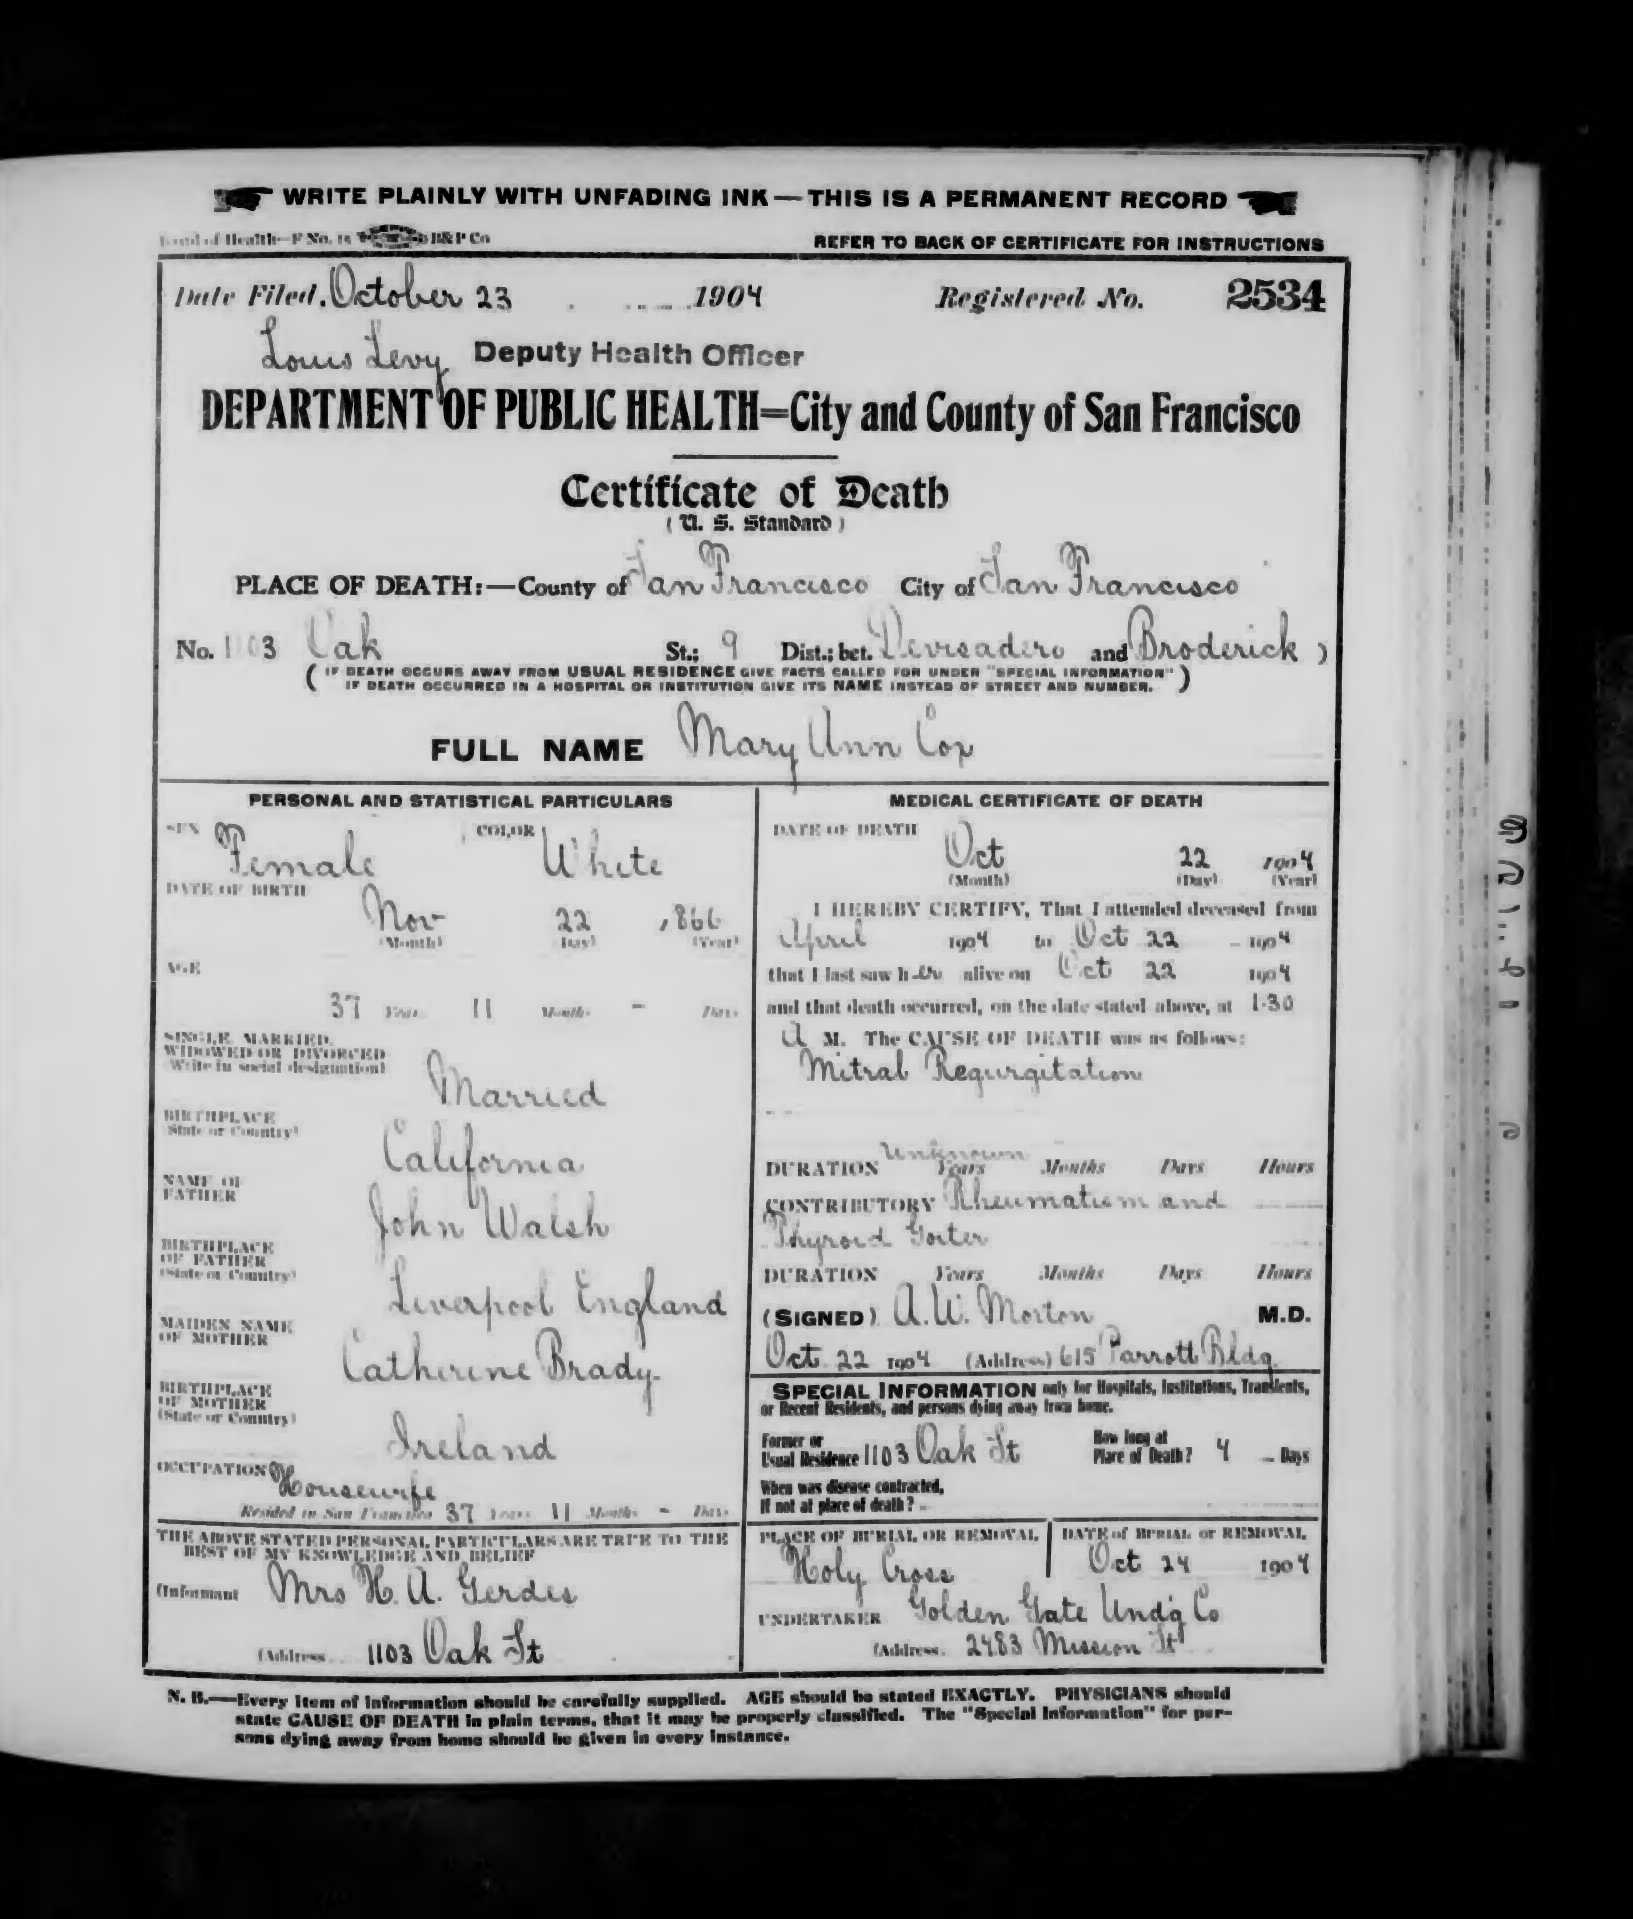 WRITE PLAINLY WITH UNFADING INK — THIS IS A PERMANENT RECORD
Board of Health—F No. 15 B&P Co
REFER TO BACK OF CERTIFICATE FOR INSTRUCTIONS
Date Filed, October 23 1904 Registered No. 2534
Louis Levy Deputy Health Officer
DEPARTMENT OF PUBLIC HEALTH=City and County of San Francisco
Certificate of Death
(U. S. Standard)
PLACE OF DEATH:—County of San Francisco City of San Francisco
No. 1103 Oak St.; 9 Dist.; bet. Devisadero and Broderick )
( IF DEATH OCCURS AWAY FROM USUAL RESIDENCE GIVE FACTS CALLED FOR UNDER "SPECIAL INFORMATION"
IF DEATH OCCURRED IN A HOSPITAL OR INSTITUTION GIVE ITS NAME INSTEAD OF STREET AND NUMBER. )
FULL NAME Mary Ann Cox
PERSONAL AND STATISTICAL PARTICULARS
SEX Female COLOR White
DATE OF BIRTH
Nov 22 1866
(Month) (Day) (Year)
AGE
37 Years 11 Months - Days
SINGLE, MARRIED,
WIDOWED OR DIVORCED
(Write in social designation)
Married
BIRTHPLACE
(State or Country)
California
NAME OF
FATHER
John Walsh
BIRTHPLACE
OF FATHER
(State or Country)
Liverpool England
MAIDEN NAME
OF MOTHER
Catherine Brady
BIRTHPLACE
OF MOTHER
(State or Country)
Ireland
OCCUPATION Housewife
Resided in San Francisco 37 Years 11 Months - Days
THE ABOVE STATED PERSONAL PARTICULARS ARE TRUE TO THE
BEST OF MY KNOWLEDGE AND BELIEF
(Informant Mrs H. A. Gerdes
(Address 1103 Oak St
MEDICAL CERTIFICATE OF DEATH
DATE OF DEATH
Oct 22 1904
(Month) (Day) (Year)
I HEREBY CERTIFY, That I attended deceased from
April 1904 to Oct 22 1904
that I last saw h er alive on Oct 22 1904
and that death occurred, on the date stated above, at 1-30
A M. The CAUSE OF DEATH was as follows:
Mitral Regurgitation
Unknown
DURATION Years Months Days Hours
CONTRIBUTORY Rheumatism and
Thyroid Goiter
DURATION Years Months Days Hours
(SIGNED) A. W. Morton M.D.
Oct 22 1904 (Address) 615 Parrott Bldg.
SPECIAL INFORMATION only for Hospitals, Institutions, Transients,
or Recent Residents, and persons dying away from home.
Former or
Usual Residence 1103 Oak St
How long at
Place of Death? 4 Days
When was disease contracted,
If not at place of death?
PLACE OF BURIAL OR REMOVAL
Holy Cross
DATE of BURIAL or REMOVAL
Oct 24 1904
UNDERTAKER Golden Gate Und'g Co
(Address. 2483 Mission St
N. B.—Every item of information should be carefully supplied. AGE should be stated EXACTLY. PHYSICIANS should
state CAUSE OF DEATH in plain terms, that it may be properly classified. The "Special Information" for per-
sons dying away from home should be given in every instance.